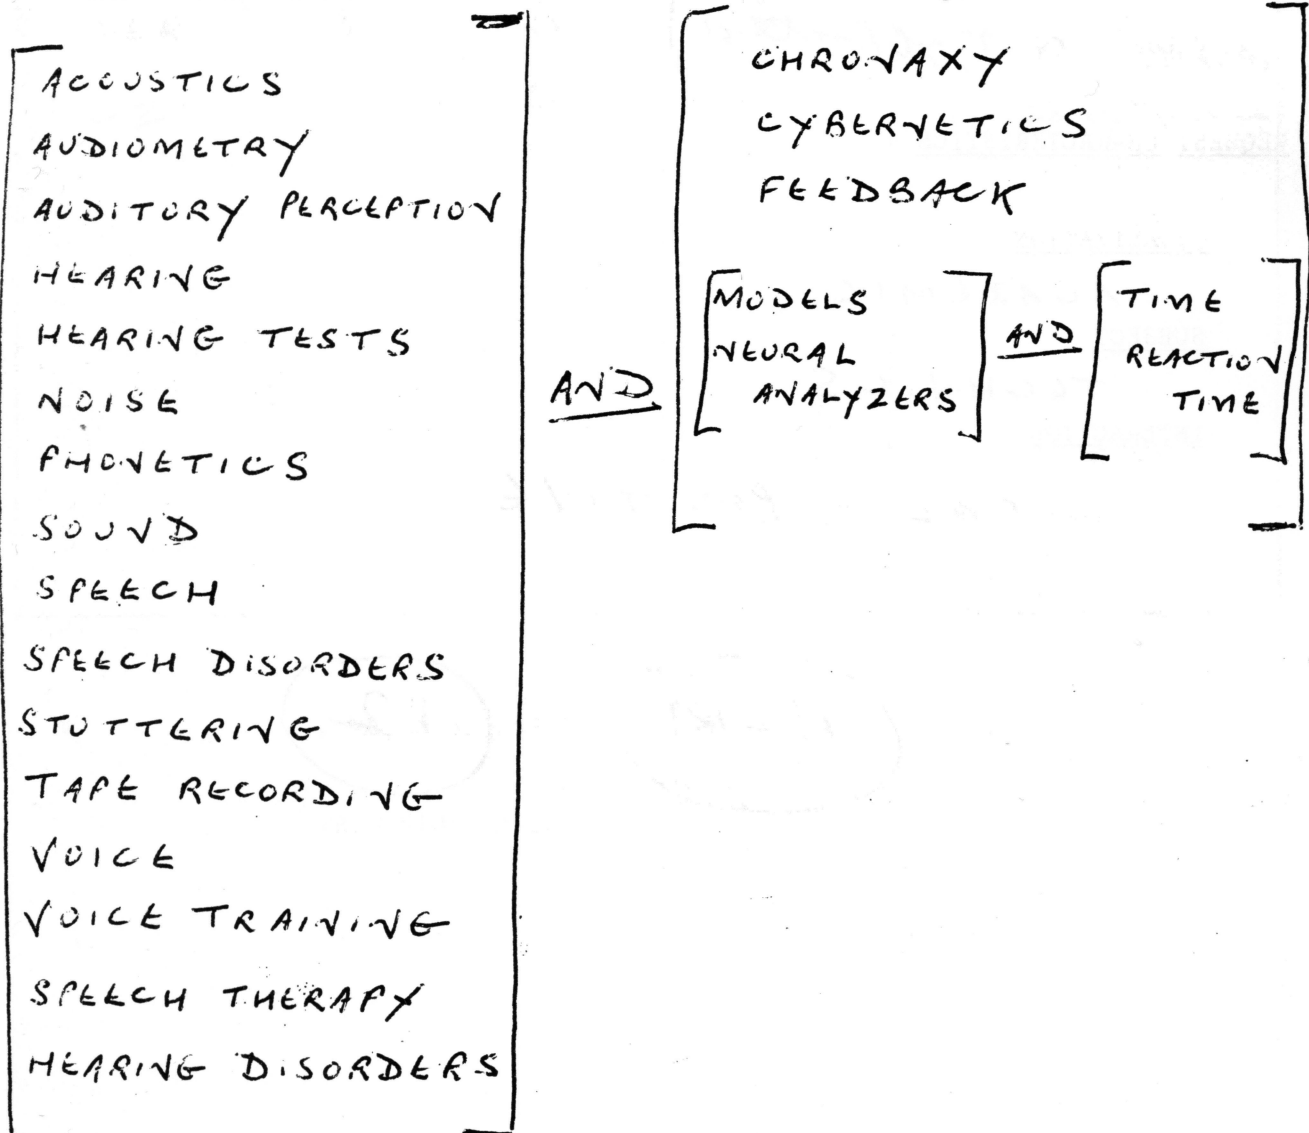 ACOUSTICS
AUDIOMETRY
AUDITORY PERCEPTION
HEARING
HEARING TESTS
NOISE
PHONETICS
SOUND
SPEECH
SPEECH DISORDERS
STUTTERING
TAPE RECORDING
VOICE
VOICE TRAINING
SPEECH THERAPY
HEARING DISORDERS
AND
CHRONAXY
CYBERNETICS
FEEDBACK
MODELS
NEURAL
ANALYZERS
AND
TIME
REACTION
TIME